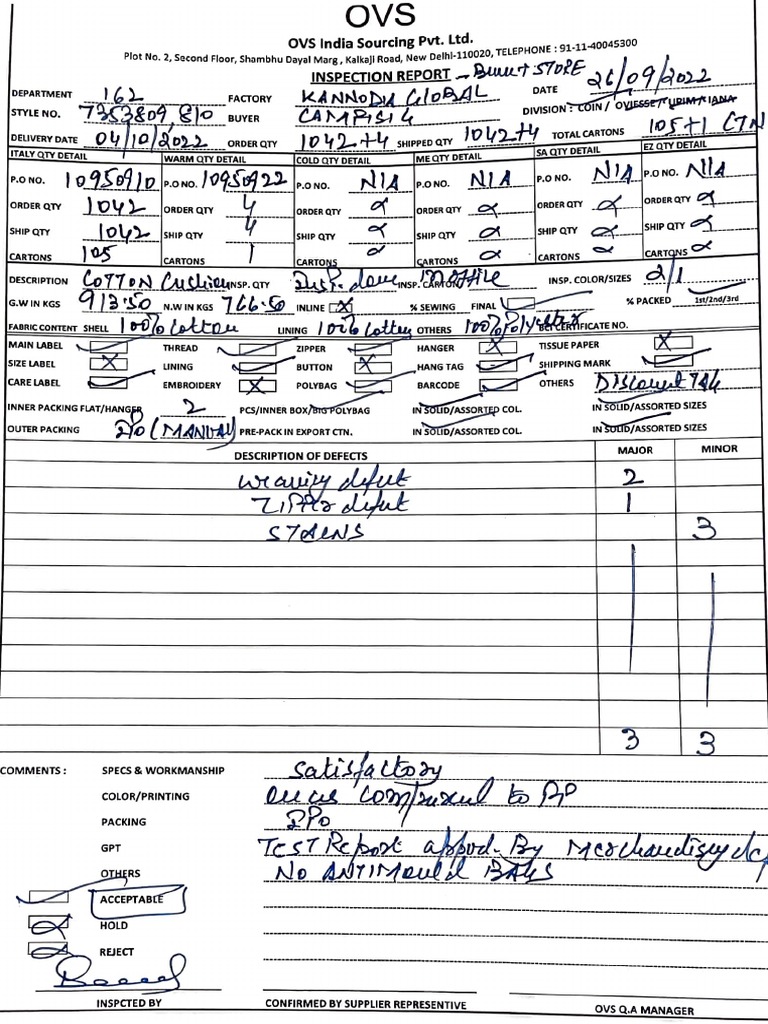 OVS
OVS India Sourcing Pvt. Ltd.
Plot No. 2, Second Floor, Shambhu Dayal Marg , Kalkaji Road, New Delhi-110020, TELEPHONE : 91-11-40045300
INSPECTION REPORT - STORE
DEPARTMENT 162 FACTORY KANNODIA GLOBAL DATE 26/09/2022
STYLE NO. 7353809, 810 BUYER CAMPISI G DIVISION : COIN / OVIESSE / UPIM / IANA
DELIVERY DATE 04/10/2022 ORDER QTY 1042+4 SHIPPED QTY 1042+4 TOTAL CARTONS 105+1 CTN
ITALY QTY DETAIL WARM QTY DETAIL COLD QTY DETAIL ME QTY DETAIL SA QTY DETAIL EZ QTY DETAIL
P.O NO. 10950910 P.O NO. 10950922 P.O NO. N/A P.O NO. N/A P.O NO. N/A P.O NO. N/A
ORDER QTY 1042 ORDER QTY 4 ORDER QTY ORDER QTY ORDER QTY ORDER QTY
SHIP QTY 1042 SHIP QTY 4 SHIP QTY SHIP QTY SHIP QTY SHIP QTY
CARTONS 105 CARTONS 1 CARTONS CARTONS CARTONS CARTONS
DESCRIPTION COTTON Cushion INSP. QTY Insp. done INSP. CARTON INSP. COLOR/SIZES 2/1
G.W IN KGS 913.50 N.W IN KGS 766.50 INLINE X % SEWING FINAL % PACKED 1st/2nd/3rd
FABRIC CONTENT SHELL 100% Cotton LINING 100% Cotton OTHERS 100% Polyester BCI CERTIFICATE NO.
MAIN LABEL THREAD ZIPPER HANGER X TISSUE PAPER X
SIZE LABEL X LINING BUTTON X HANG TAG SHIPPING MARK
CARE LABEL EMBROIDERY X POLYBAG BARCODE OTHERS Discount TAG
INNER PACKING FLAT/HANGER 2 PCS/INNER BOX/BIG POLYBAG IN SOLID/ASSORTED COL. IN SOLID/ASSORTED SIZES
OUTER PACKING (MANUAL) PRE-PACK IN EXPORT CTN. IN SOLID/ASSORTED COL. IN SOLID/ASSORTED SIZES
DESCRIPTION OF DEFECTS MAJOR MINOR
Weaving defect 2
Zipper defect 1
STAINS 3
3 3
COMMENTS : SPECS & WORKMANSHIP Satisfactory
COLOR/PRINTING to PP
PACKING
GPT TEST Report appvd. By Merchandising
OTHERS No ANTIMOULD BAGS
ACCEPTABLE
HOLD
REJECT
INSPCTED BY CONFIRMED BY SUPPLIER REPRESENTIVE OVS Q.A MANAGER